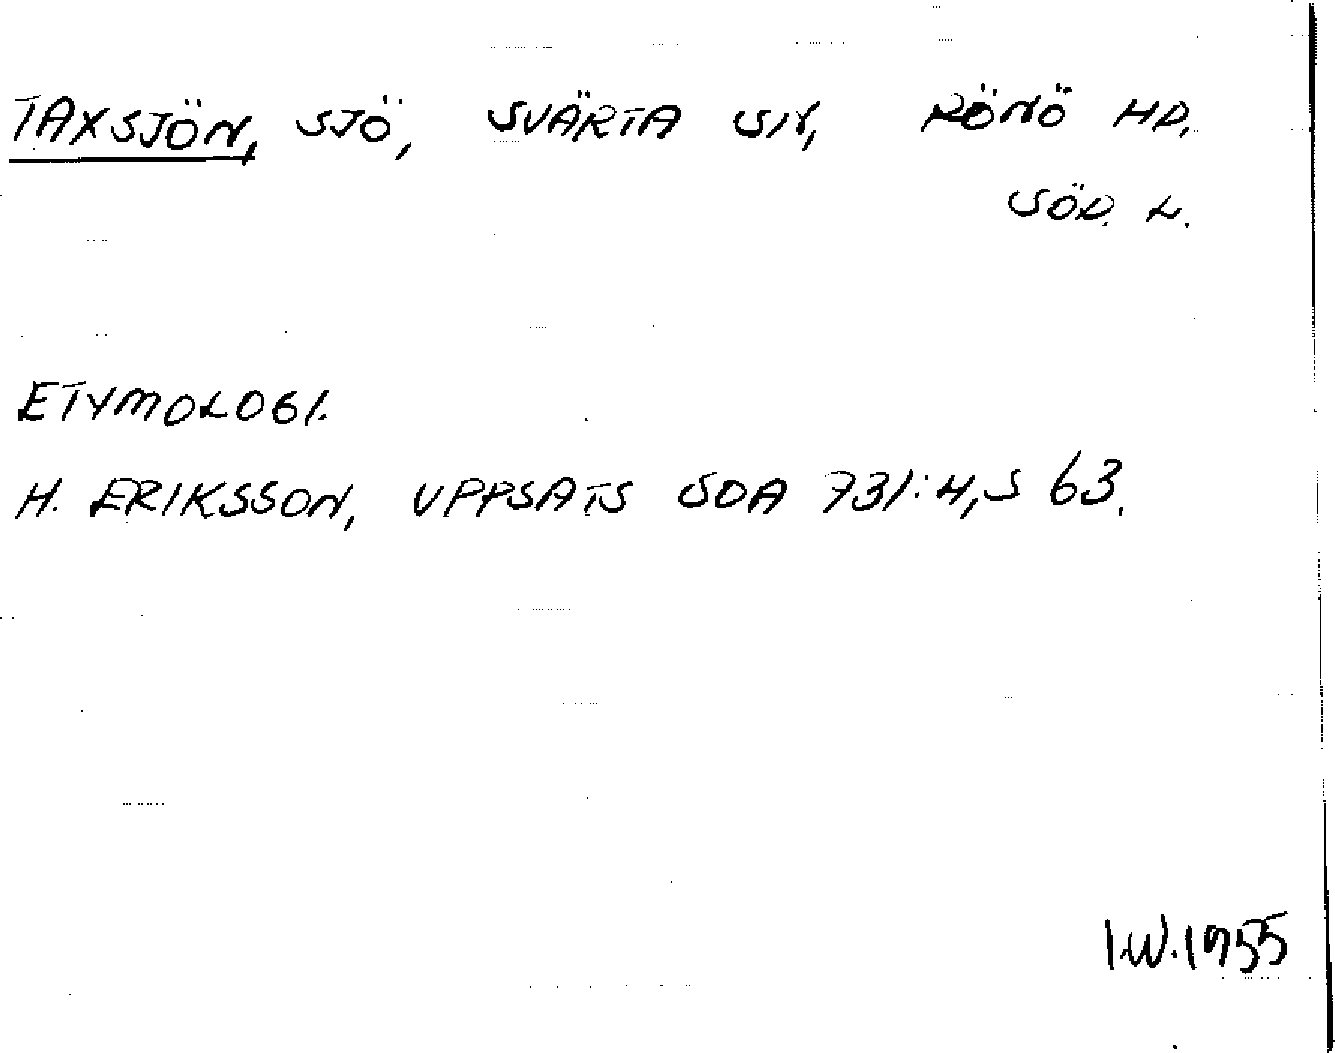 TAXSJÖN, SJÖ, SVÄRTA SN, RÖNÖ HD.
SÖD. L.
ETYMOLOGI.
H. ERIKSSON, UPPSATS SOA 731:4, S 63.
I.W. 1955